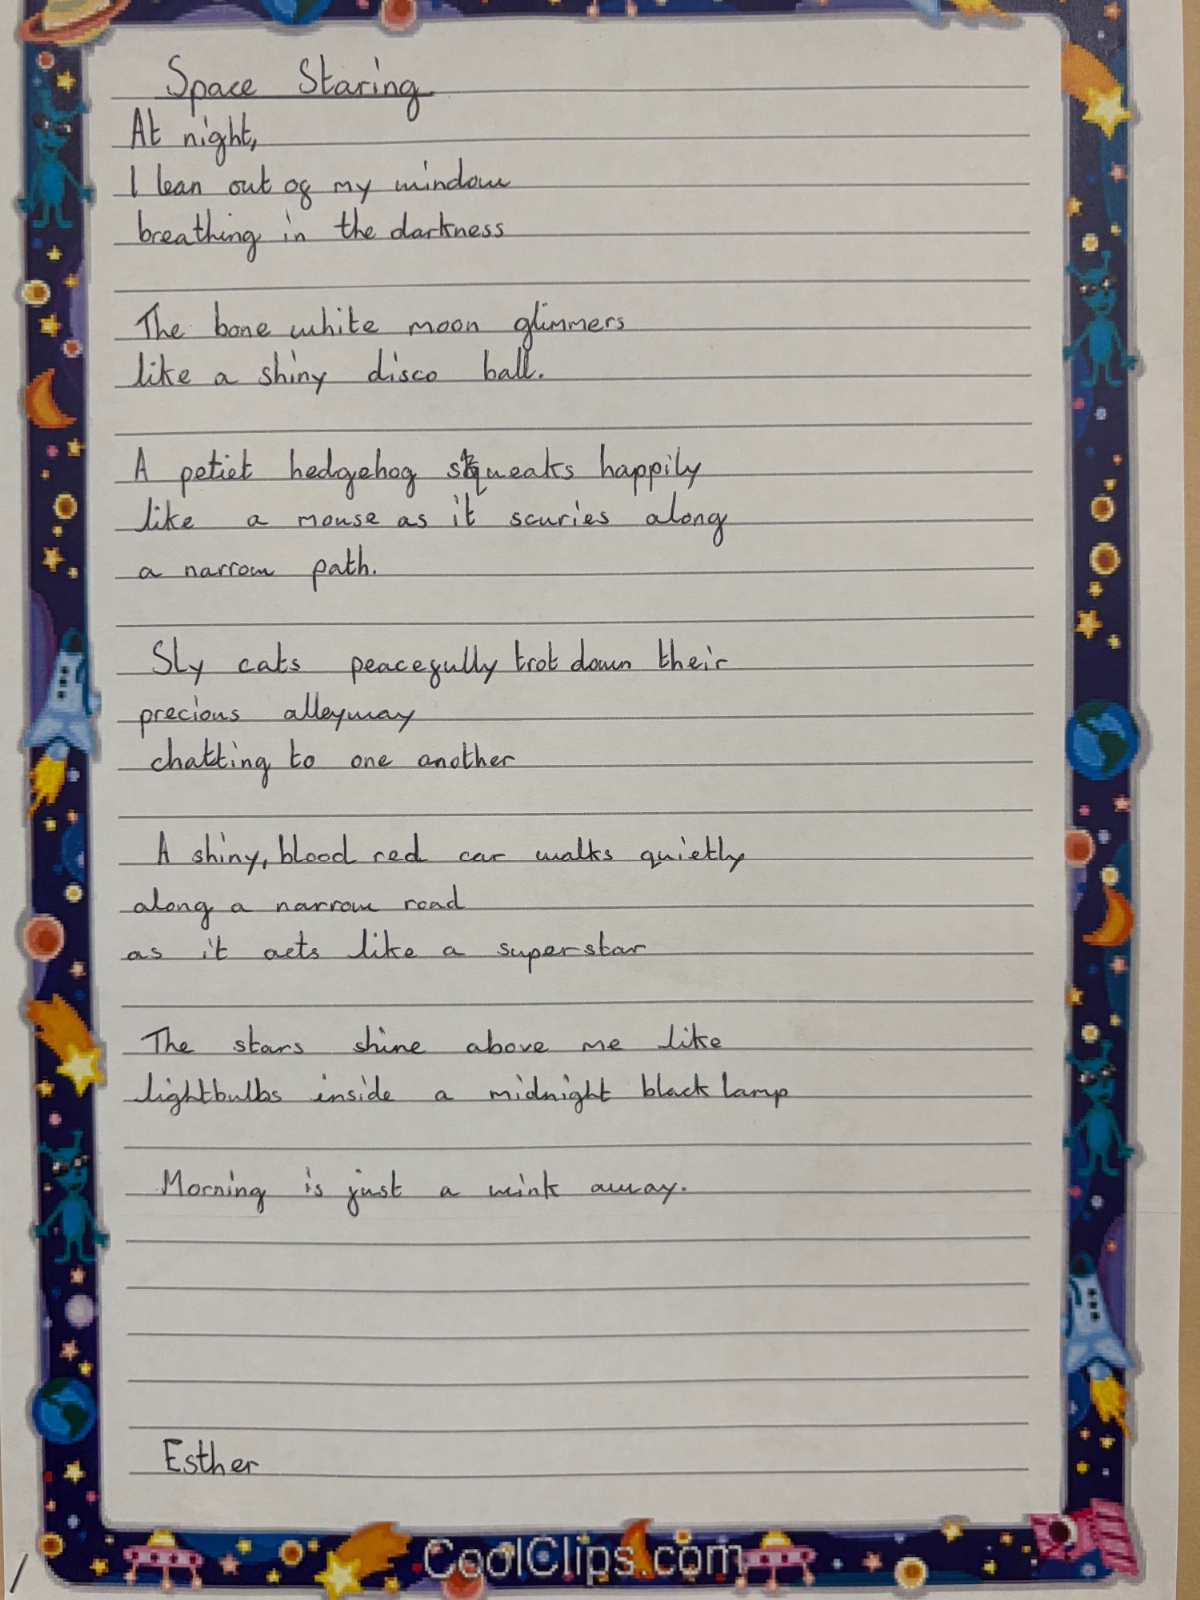 Space Staring
At night,
I lean out of my window
breathing in the darkness
The bone white moon glimmers
like a shiny disco ball.
A petiet hedgehog squeaks happily
like a mouse as it scuries along
a narrow path.
Sly cats peacefully trot down their
precious alleyway
chatting to one another
A shiny, blood red car walks quietly
along a narrow road
as it acts like a superstar
The stars shine above me like
lightbulbs inside a midnight black lamp
Morning is just a wink away.
Esther
CoolClips.com